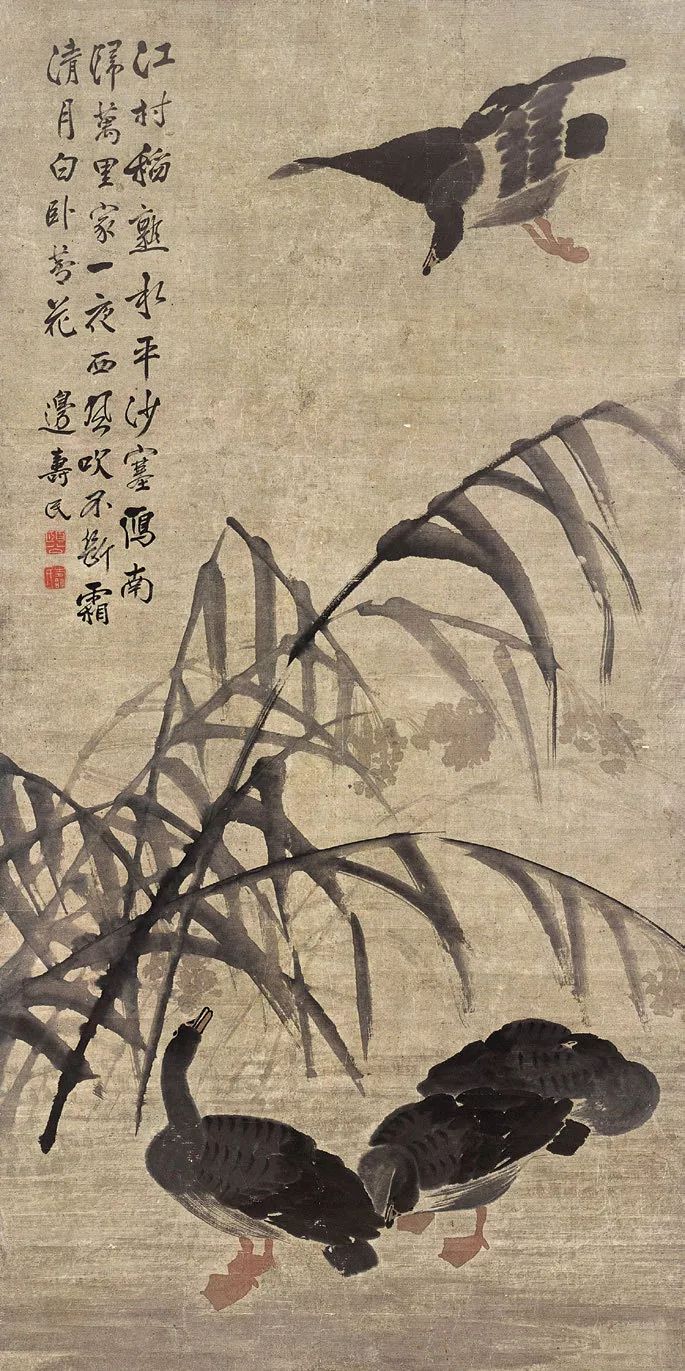 江村稻熟水平沙塞鴈南
歸萬里家一夜西風吹不斷霜
清月白卧蘆花
邊壽民